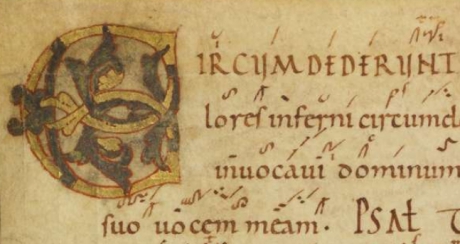 CIRCUMDEDERUNT
lores inferni circumd
inuocaui dominum
suo uocem meam. PSAL